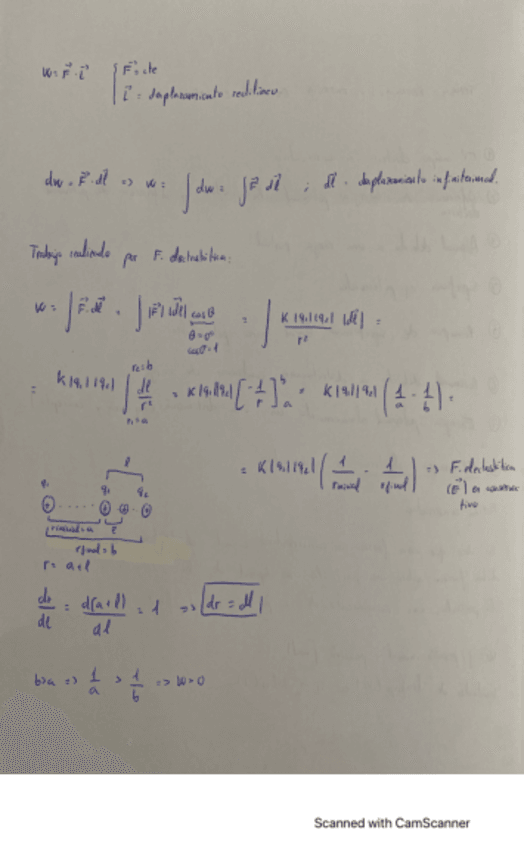 W = F⃗ · l⃗ { F⃗ = cte
l⃗ = desplazamiento rectilíneo
dw = F⃗ · dl⃗ => W = ∫ dw = ∫ F⃗ dl⃗ ; dl⃗ = desplazamiento infinitesimal.
Trabajo realizado por F. electrostática:
W = ∫ F⃗ · dl⃗ = ∫ |F⃗| |dl⃗| cosθ = ∫ K|q₁||q₂| |dl⃗| / r² =
θ = 0º
cosθ = 1
= K|q₁||q₂| ∫ dl / r² = K|q₁||q₂| [-1/r] = K|q₁||q₂| (1/a - 1/b) =
r₂ = b
r₁ = a
b
a
= K|q₁||q₂| (1/rinicial - 1/rfinal) => F. electrostática
(F⃗) es conserva
tiva
l
q₁ q₂ q₂
rinicial = a l
rfinal = b
r = a + l
dr/dl = d(a+l)/dl = 1 => dr = dl
b>a => 1/a > 1/b => W>0
Scanned with CamScanner